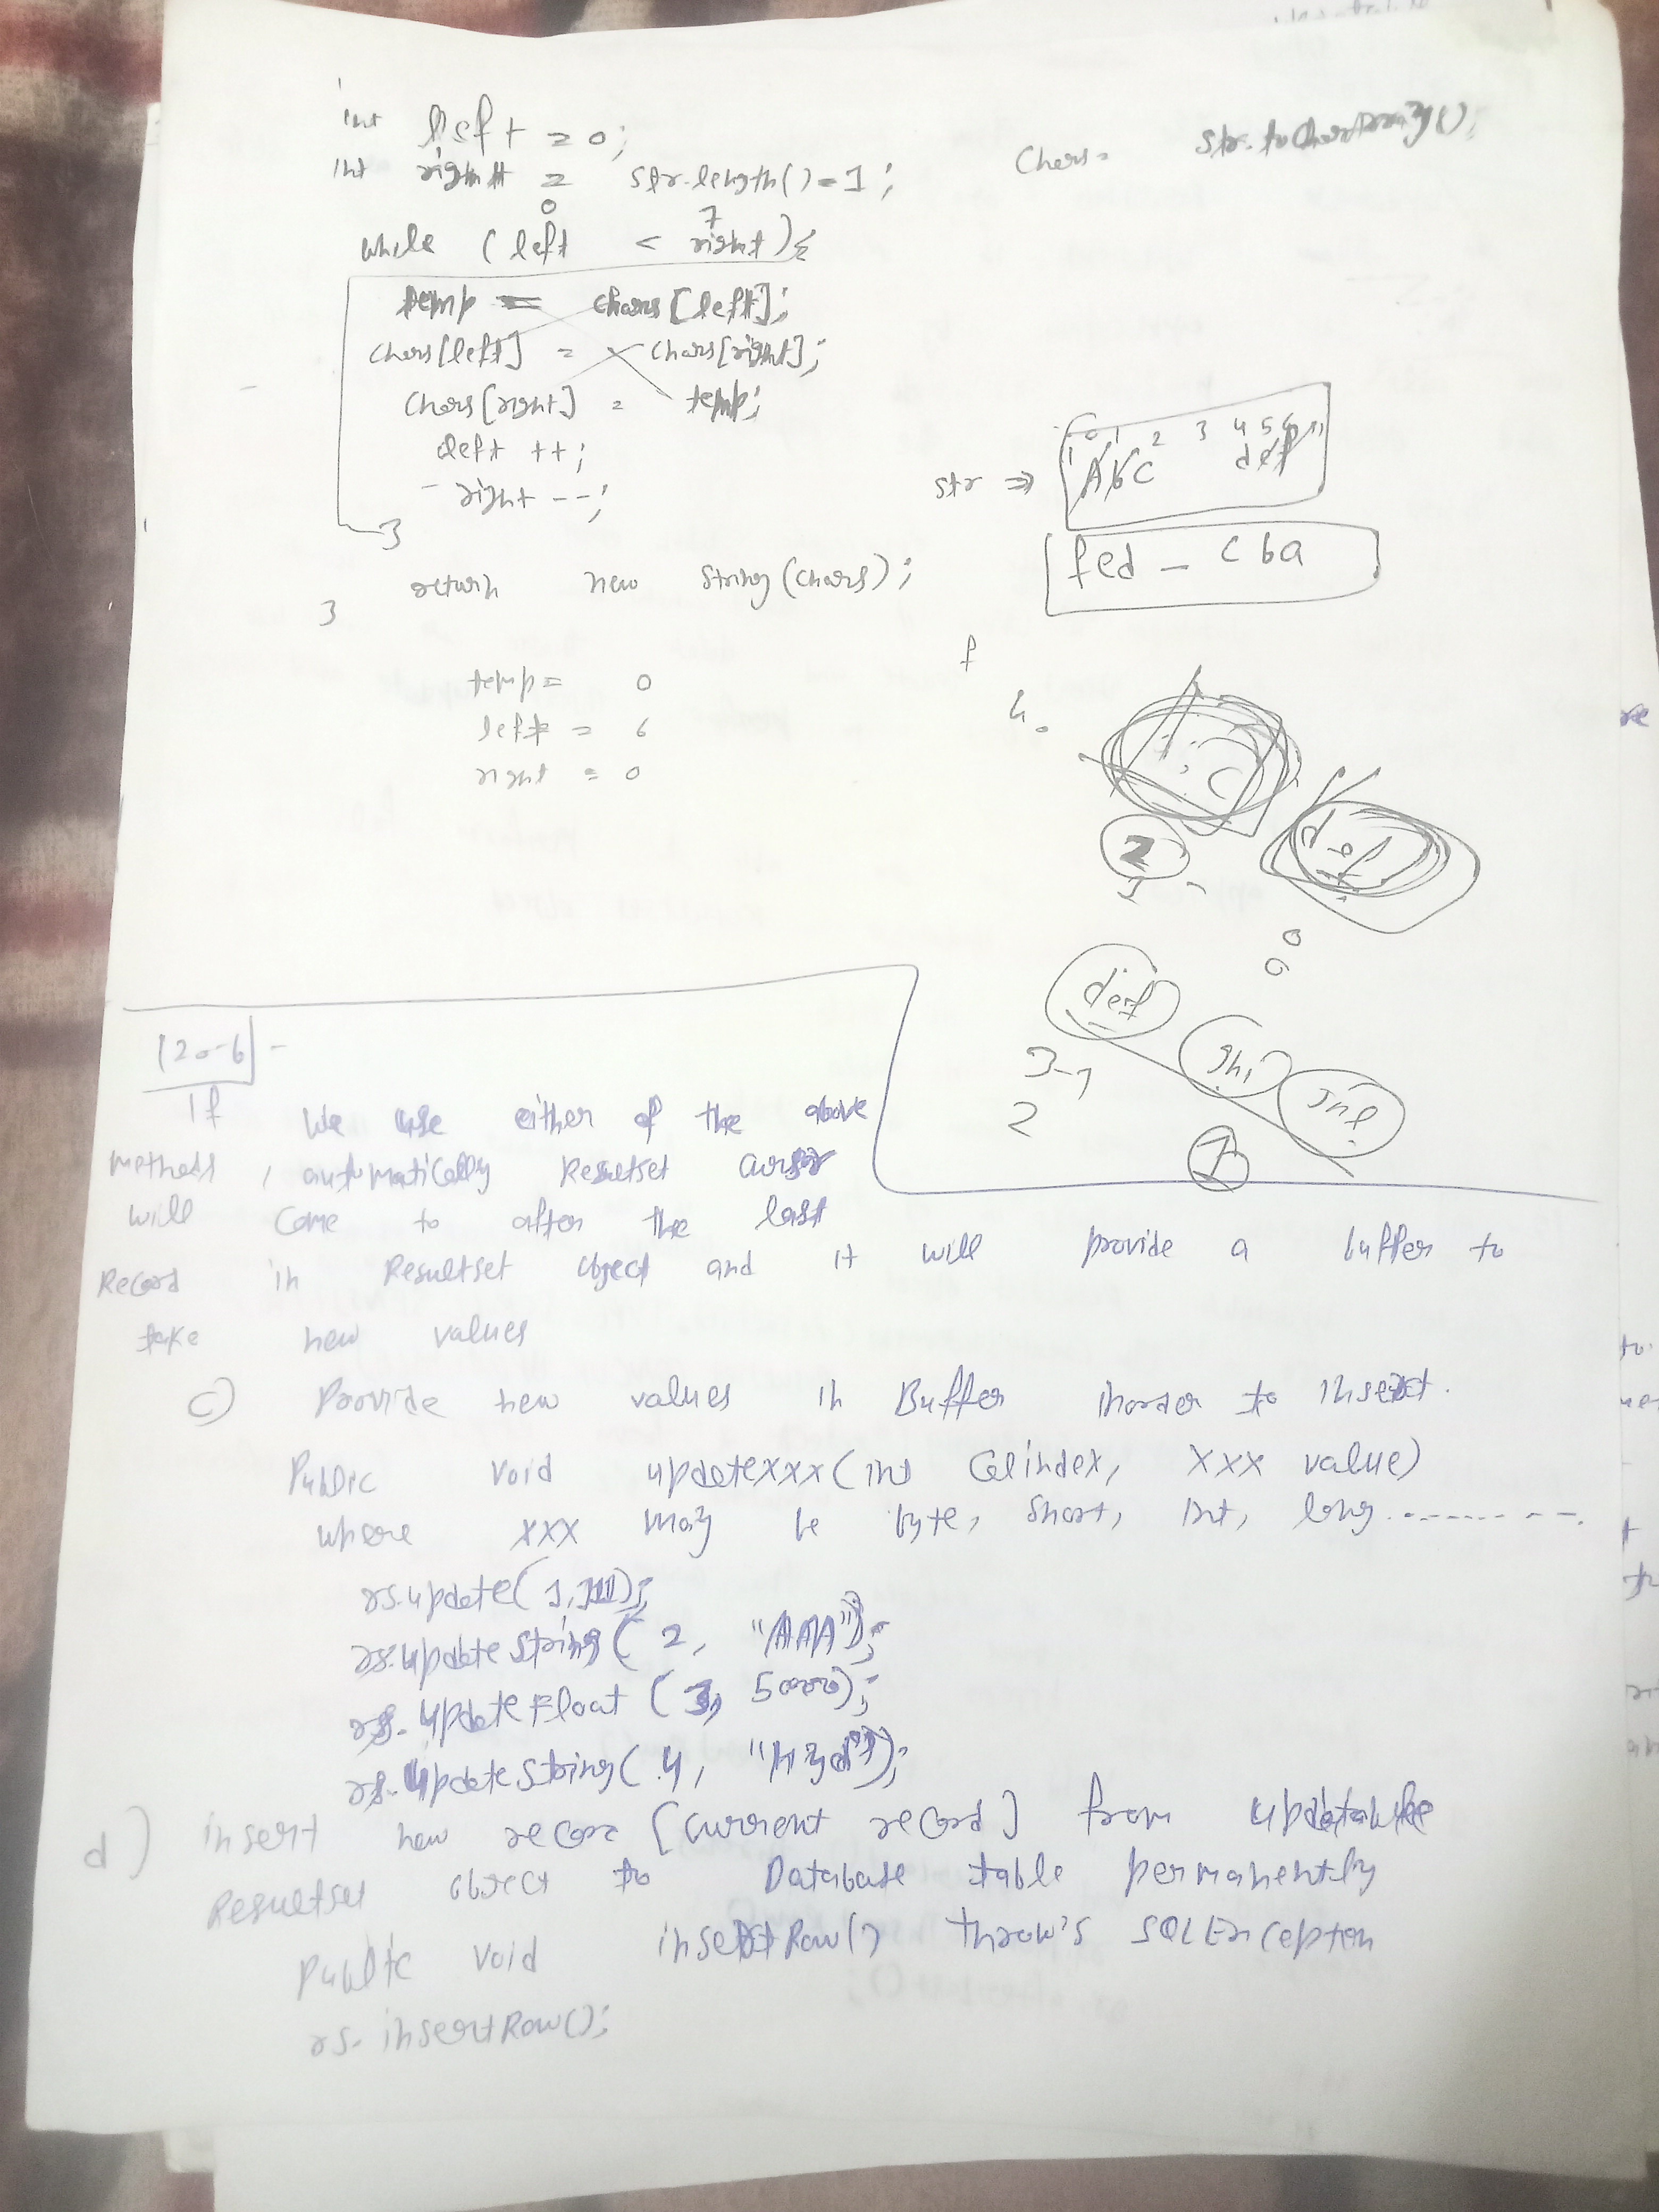 int left = 0;
int right = str.length()-1;
chars = str.toCharArray();
0 7
while (left < right){
temp = chars[left];
chars[left] = chars[right];
chars[right] = temp;
left ++;
right --;
}
return new String(chars);
}
0 1 2 3 4 5 6
str => Abc def
fed - cba
f
temp = 0
left = 6
right = 0
4.
2
1
def
0
6
def
ghi
3-1
2
1
120-6 -
If We use either of the above
methods, automatically Resultset cursor
will come to after the last
Record in Resultset object and it will provide a buffer to
take new values
c) Provide new values in Buffer inorder to insert.
Public void updatexxx(int Colindex, xxx value)
where xxx may be byte, short, int, long.---------.
rs.update(1,111);
rs.updateString(2, "AAA");
rs.updateFloat(3, 5000);
rs.updateString(4, "Hyd");
d) insert new recore [current record] from updatable
Resultset object to Database table permanently
Public void insertRow() throw's SQLException
rs.insertRow();